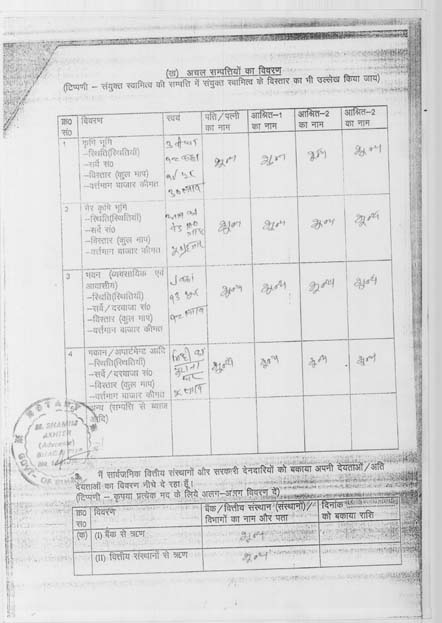 (ख) अचल सम्पत्तियों का विवरण
(टिप्पणी - संयुक्त स्वामित्व की सम्पत्ति में संयुक्त स्वामित्व के विस्तार का भी उल्लेख किया जाय)
क्र0 सं0 विवरण स्वयं पति/पत्नी का नाम आश्रित-1 का नाम आश्रित-2 का नाम आश्रित-2 का नाम
1 कृषि भूमि
-स्थिति(स्थितियाँ)
-सर्वे सं0
-विस्तार (कुल माप)
-वर्त्तमान बाजार कीमत
शून्य शून्य शून्य शून्य
2 गैर कृषि भूमि
-स्थिति(स्थितियाँ)
-सर्वे सं0
-विस्तार (कुल माप)
-वर्त्तमान बाजार कीमत
शून्य शून्य शून्य शून्य
3 भवन (व्यवसायिक एवं
आवासीय)
-स्थिति(स्थितियाँ)
-सर्वे/दरवाजा सं0
-विस्तार (कुल माप)
-वर्त्तमान बाजार कीमत
शून्य शून्य शून्य शून्य
4 मकान/अपार्टमेन्ट आदि
-स्थिति(स्थितियाँ)
-सर्वे/दरवाजा सं0
-विस्तार (कुल माप)
-वर्त्तमान बाजार कीमत
शून्य शून्य शून्य शून्य
अन्य (सम्पत्ति से ब्याज
आदि)
NOTARY
M. SHAMIM
AKHTER
(Advocate)
मैं सार्वजनिक वित्तीय संस्थानों और सरकारी देनदारियों को बकाया अपनी देयताओं/अति
देयताओं का विवरण नीचे दे रहा हूँ।
(टिप्पणी - कृपया प्रत्येक मद के लिये अलग-अलग विवरण दें)
क्र0 सं0 विवरण बैंक/वित्तीय संस्थान (संस्थानों)/विभागों का नाम और पता दिनांक को बकाया राशि
(क) (I) बैंक से ऋण शून्य
(II) वित्तीय संस्थानों से ऋण शून्य